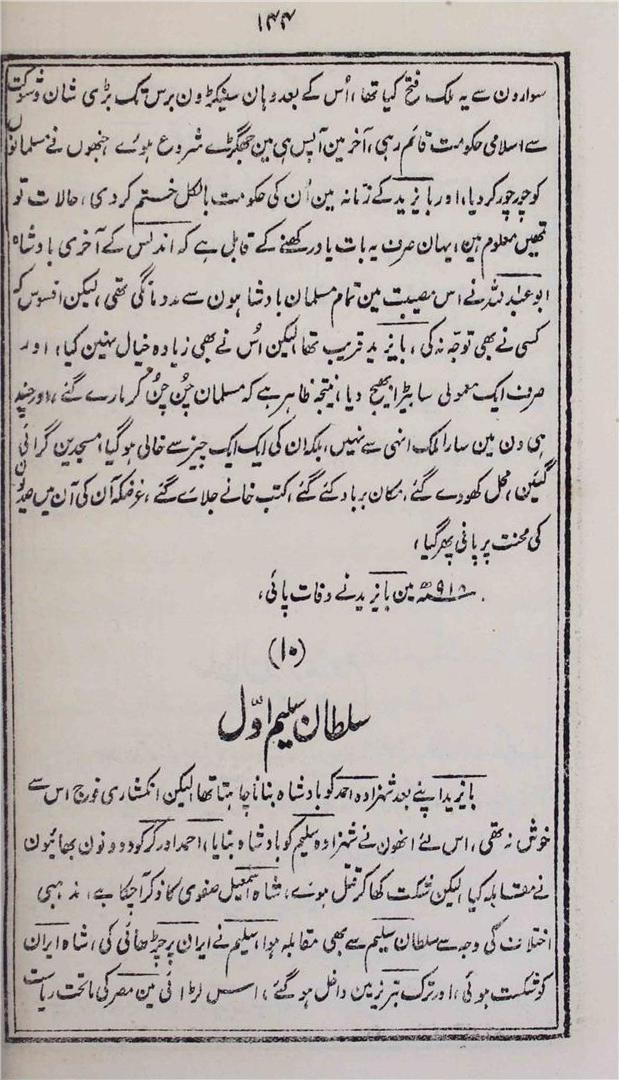 ۱۴۴
سوارون سے یہ ملک فتح کیا تھا، اُس کے بعد وہان سینکڑون برس تک بڑی شان و شوکت
سے اسلامی حکومت قائم رہی، آخر مین آپس ہی مین جھگڑے شروع ہوئے جنھون نے مسلمانون
کو چور چور کر دیا، اور بایزید کے زمانہ مین اُن کی حکومت بالکل ختم کر دی، حالات تو
تمھین معلوم ہین، یہان صرف یہ بات یاد رکھنے کے قابل ہے کہ اندلس کے آخری بادشاہ
ابو عبد اللہ نے اس مصیبت مین تمام مسلمان بادشاہون سے مدد مانگی تھی، لیکن افسوس کہ
کسی نے بھی توجہ نہ کی، بایزید قریب تھا لیکن اُس نے بھی زیادہ خیال نہین کیا، اور
صرف ایک معمولی سا بیڑا بھیج دیا، نتیجہ ظاہر ہے کہ مسلمان چُن چُن کر مارے گئے، اور چند
ہی دن مین سارا ملک انہی سے نہیں، بلکہ ان کی ایک ایک چیز سے خالی ہو گیا، مسجدین گرائی
گئین، محل کھودے گئے، مکان برباد کئے گئے، کتب خانے جلائے گئے، غرضکہ آن کی آن میں صدیون
کی محنت پر پانی پھر گیا،
۹۱۸ھ مین بایزید نے وفات پائی،
(۱۰)
سلطان سلیم اوّل
بایزید اپنے بعد شہزادہ احمد کو بادشاہ بنانا چاہتا تھا لیکن انکشاری فوج اس سے
خوش نہ تھی، اس لئے انھون نے شہزادہ سلیم کو بادشاہ بنایا، احمد اور کرکود دونون بھائیون
نے مقابلہ کیا لیکن شکست کھا کر قتل ہوئے، شاہ اسمٰعیل صفوی کا ذکر آچکا ہے، مذہبی
اختلاف کی وجہ سے سلطان سلیم سے بھی مقابلہ ہوا، سلیم نے ایران پر چڑھائی کی، شاہ ایران
کو شکست ہوئی، اور ترک تبریز مین داخل ہو گئے، اس لڑائی مین مصر کی ماتحت ریاست